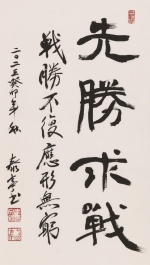 先勝求戰
戰勝不復應形無窮
二〇二三癸卯年秋
書